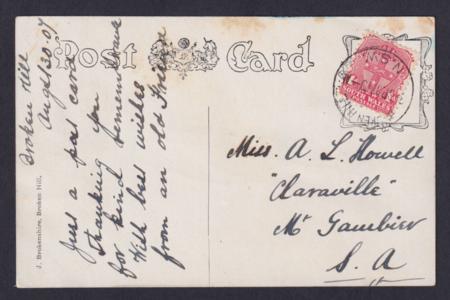 Post Card
Broken Hill
Aug 30 07
Just a post card
thanking you
for kind remembrance
With best wishes
from an old Friend
J. Brokenshire, Broken Hill.
N.S.W
SOUTH WALES
Miss. A. L. Howell
"Claraville"
Mt Gambier
S. A